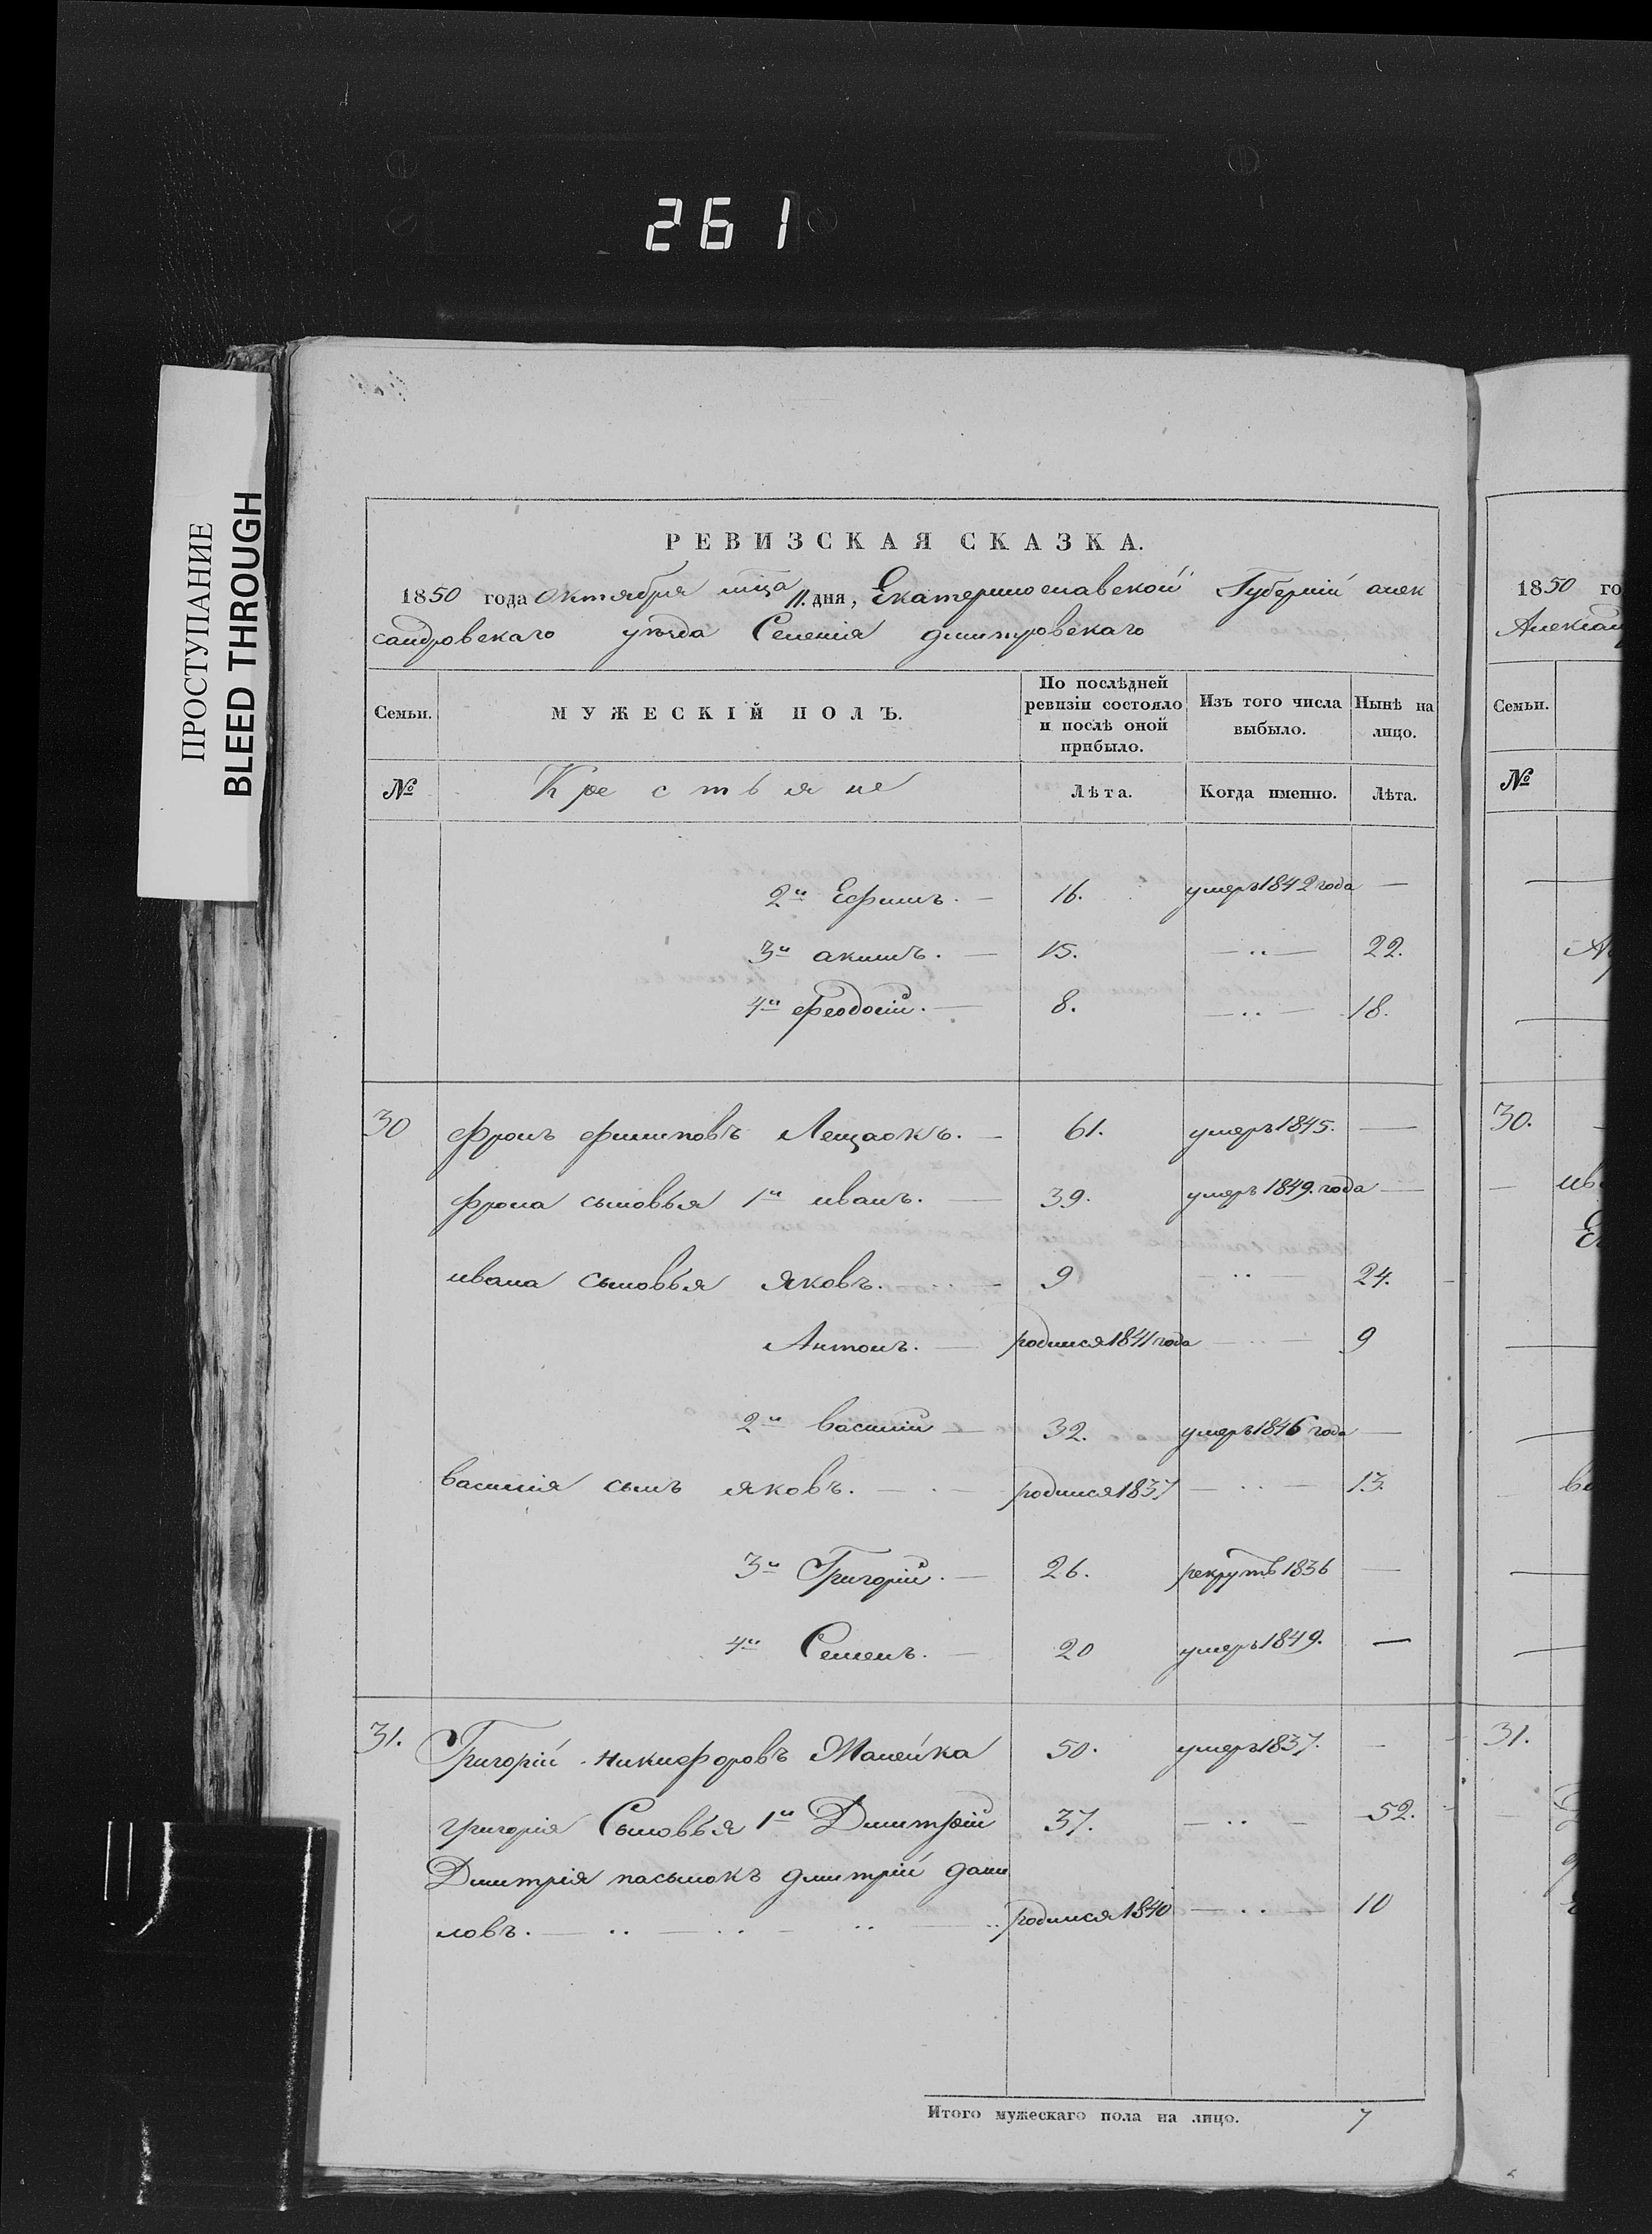 261
ПРОСТУПАНИЕ
BLEED THROUGH
РЕВИЗСКАЯ СКАЗКА.
1850 года Октября мца 11. дня, Екатеринославской Губерніи алек
сандровскаго уѣзда Селенія дмитровскаго
Семьи. МУЖЕСКІЙ ПОЛЪ. По послѣдней ревизіи состояло и послѣ оной прибыло. Изъ того числа выбыло. Нынѣ на лицо.
№ Крестьяне Лѣта. Когда именно. Лѣта.
2й Ефимъ. — 16. умеръ 1842 года —
3й акимъ. — 15. — .. — 22.
4й феодосій. — 8. — .. — 18.
30 фролъ филиповъ Лещаокъ. — 61. умеръ 1845. —
фрола сыновья 1й иванъ. — 39. умеръ 1849. года —
ивана сыновья яковъ. 9 — .. — 24.
Антонъ. — родился 1841 года — .. — 9
2й василій — 32. умеръ 1846 года —
василія сынъ яковъ. — родился 1837 — .. — 13.
3й Григорій. — 26. рекрутъ 1836 —
4й Семенъ. — 20 умеръ 1849. —
31. Григорій никифоровъ Малейка 50. умеръ 1837. —
григорія Сыновья 1й Дмитрій 37. — .. — 52.
Дмитрія пасынокъ дмитрій дани
ловъ. — .. — .. — .. — .. родился 1840 — .. — 10
Итого мужескаго пола на лицо. 7
1850 го
Алексан
Семьи.
№
30.
ива
ва
31.